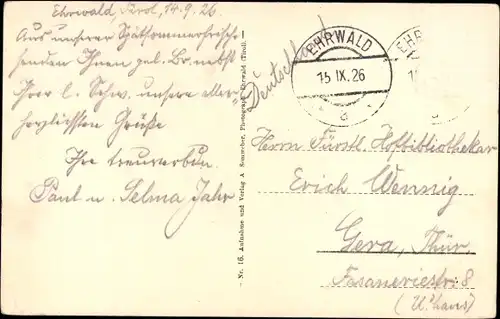 Ehrwald Tirol, 14.9.26.
Aus unserer Spätsommerfrische
senden Ihnen gel. Br. nebst
Ihrer l. Schw. unsere aller-
herzlichsten Grüße
Ihre treuverbun.
Paul u. Selma Jahr
Nr. 16. Aufnahme und Verlag A. Somweber, Photograph, Ehrwald (Tirol).
Deutschland
EHRWALD
15 IX. 26
a
EHR
Herrn Fürstl. Hofbibliothekar
Erich Wennig
Gera, Thür.
Fasaneriestr. 8